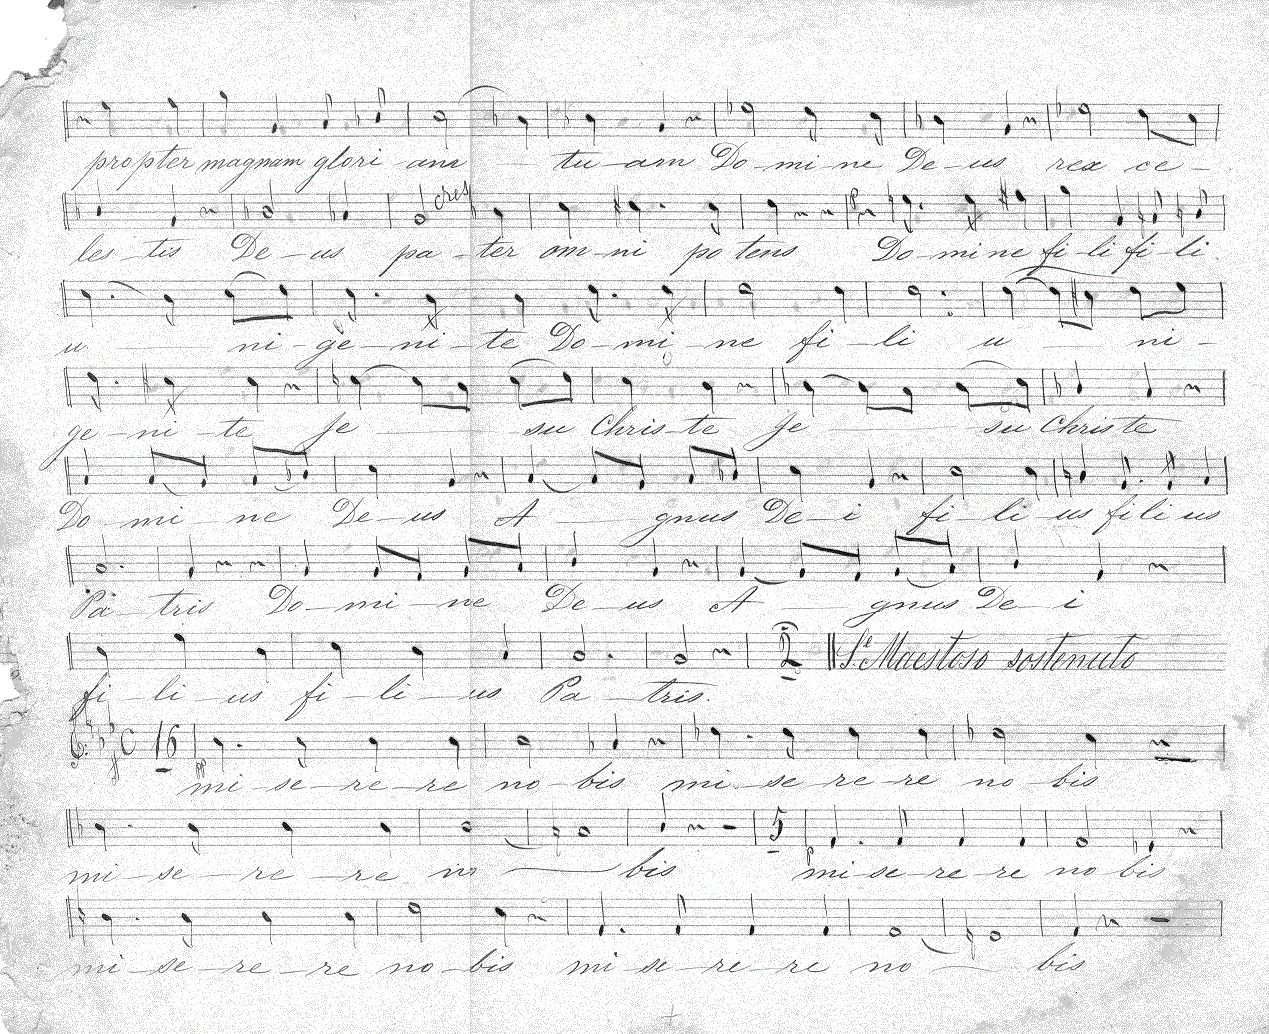 propter magnam glori am tu am Do mi ne De us rex ce
cres
les tis De us pa ter om ni po tens Do mi ne fi li fi li
u ni ge ni te Do mi ne fi li u ni
ge ni te Je su Chris te Je su Chris te
Do mi ne De us A gnus De i fi li us fi li us
Pa tris Do mi ne De us A gnus De i
2 Maestoso sostenuto
fi li us fi li us Pa tris.
C 16
pp
mi se re re no bis mi se re re no bis
5
mi se re re no bis mi se re re no bis
mi se re re no bis mi se re re no bis